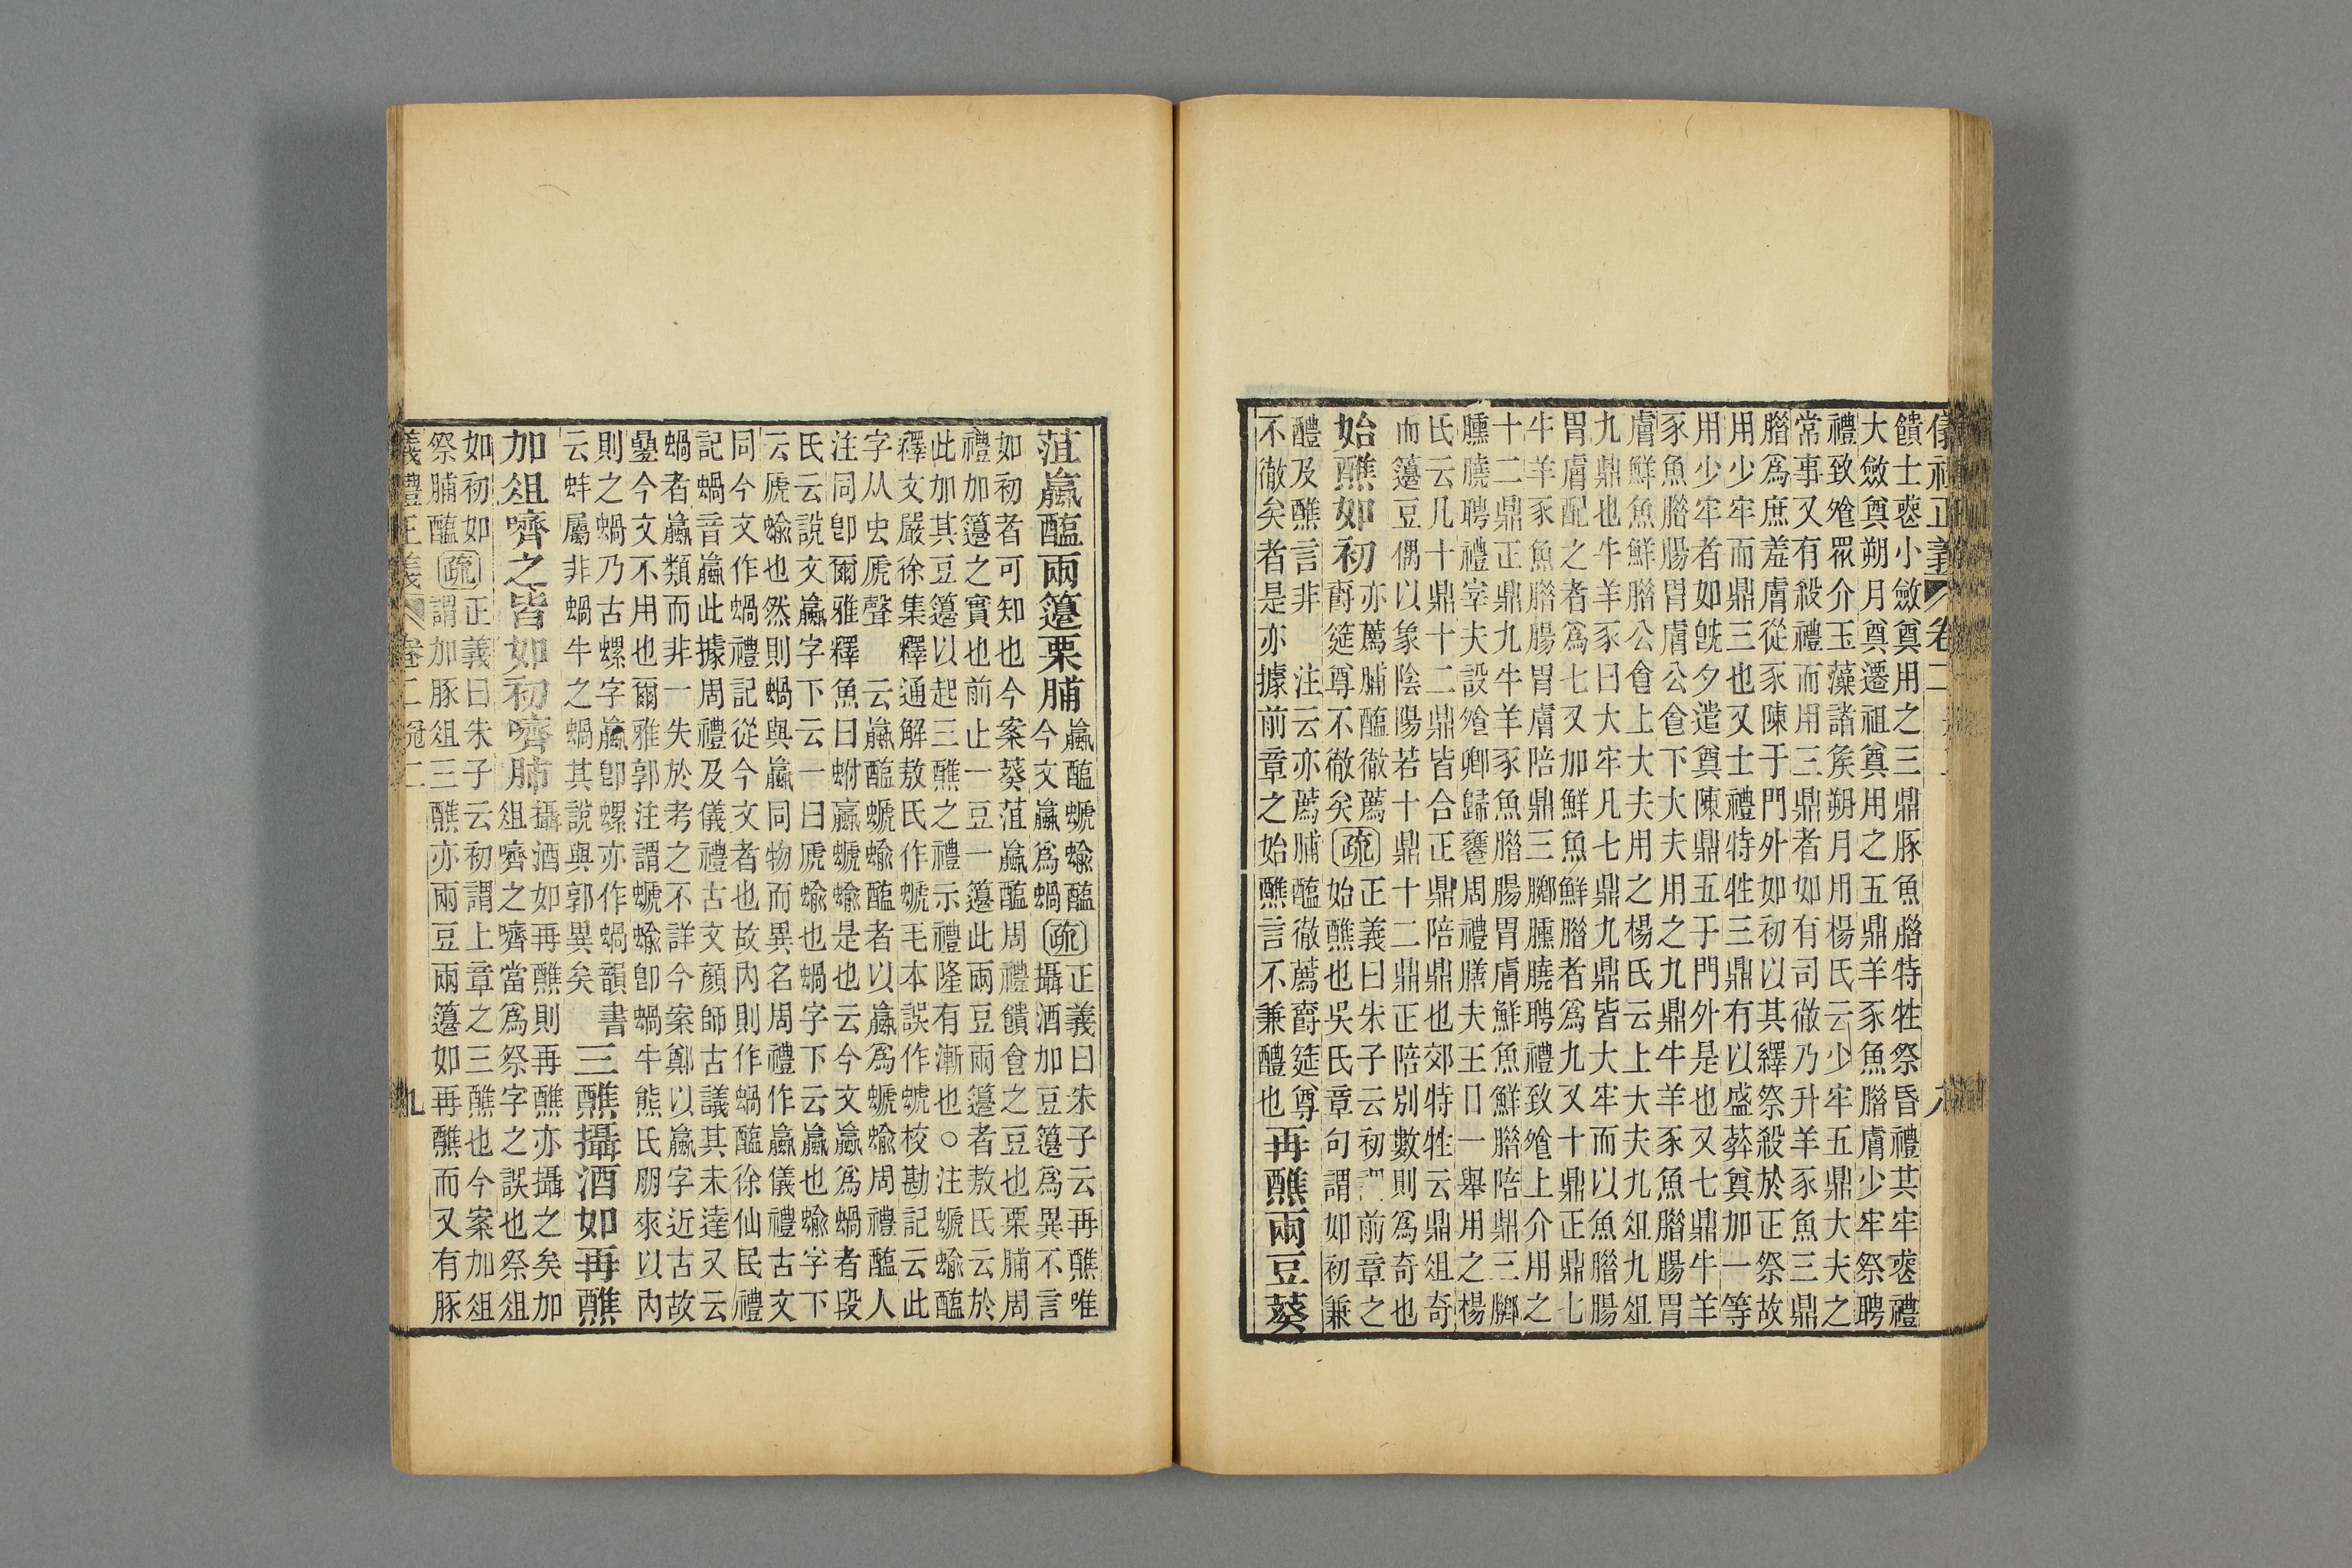 儀禮正義 卷二
饋士喪小斂奠用之三鼎豚魚腊特牲祭昏禮其牢喪禮
大斂奠朔月奠遷祖奠用之五鼎羊豕魚腊膚少牢祭聘
禮致飧眾介玉藻諸矦朔月用楊氏云少牢五鼎大夫之
常事又有殺禮而用三鼎者如有司徹乃升羊豕魚三鼎
腊爲庶羞膚從豕陳于門外如初以其繹祭殺於正祭故
用少牢而鼎三也又士禮特牲三鼎有以盛葬奠加一等
用少牢者如旣夕遣奠陳鼎五于門外是也又七鼎牛羊
豕魚腊腸胃膚公食下大夫用之九鼎牛羊豕魚腊腸胃
膚鮮魚鮮腊公食上大夫用之楊氏云上大夫九俎九俎
九鼎也牛羊豕曰大牢凡七鼎九鼎皆大牢而以魚腊腸
胃膚配之者爲七又加鮮魚鮮腊者爲九又十鼎正鼎七
牛羊豕魚腊腸胃膚陪鼎三膷臐膮聘禮致飧上介用之
十二鼎正鼎九牛羊豕魚腊腸胃膚鮮魚鮮腊陪鼎三膷
臐膮聘禮宰夫設飧卿歸饔周禮膳夫王日一舉用之楊
氏云几十鼎十二鼎皆合正鼎陪鼎也郊特牲云鼎俎奇
而籩豆偶以象陰陽若十鼎十二鼎正陪別數則爲奇也
始醮如初
亦薦脯醢徹薦
爵筵尊不徹矣
疏
正義曰朱子云初謂前章之
始醮也吳氏章句謂如初兼
醴及醮言非 注云亦薦脯醢徹薦爵筵尊
不徹矣者是亦據前章之始醮言不兼醴也
再醮兩豆葵
菹蠃醢兩籩栗脯
蠃醢蜬蝓醢
今文蠃爲蝸
疏
正義曰朱子云再醮唯
攝酒加豆籩爲異不言
如初者可知也今案葵菹蠃醢周禮饋食之豆也栗脯周
禮加籩之實也前止一豆一籩此兩豆兩籩者敖氏云於
此加其豆籩以起三醮之禮示禮隆有漸也○注蜬蝓醢
釋文嚴徐集釋通解敖氏作蜬毛本誤作蜬校勘記云此
字从虫虒聲 云蠃醢蜬蝓醢者以蠃爲蜬蝓周禮醢人
注同卽爾雅釋魚曰蚹蠃蜬蝓是也云今文蠃爲蝸者段
氏云說文蠃字下云一曰虒蝓也蝸字下云蠃也蝓字下
云虒蝓也然則蝸與蠃同物而異名周禮作蠃儀禮古文
同今文作蝸禮記從今文者也故內則作蝸醢徐仙民禮
記蝸音蠃此據周禮及儀禮古文顏師古議其未達又云
蝸者蠃類而非一失於考之不詳今案鄭以蠃字近古故
㬪今文不用也爾雅郭注謂蜬蝓卽蝸牛熊氏朋來以內
則之蝸乃古螺字蠃卽螺亦作蝸韻書
云蚌屬非蝸牛之蝸其說與郭異矣
三醮攝酒如再醮
加俎嚌之皆如初嚌肺
攝酒如再醮則再醮亦攝之矣加
俎嚌之嚌當爲祭字之誤也祭俎
如初如
祭脯醢
疏
正義曰朱子云初謂上章之三醮也今案加俎
謂加豚俎三醮亦兩豆兩籩如再醮而又有豚
儀禮正義 卷二 冠二 九